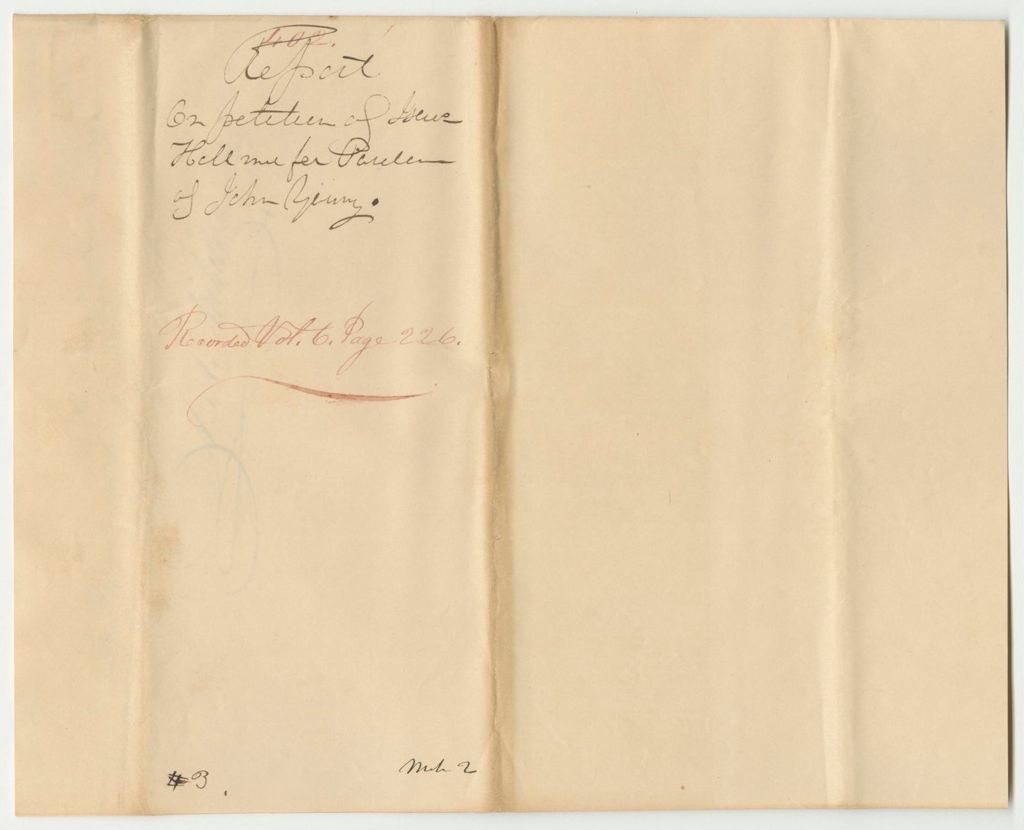 402.
Report
On petition of
Hall and for Pardon
of John Young.
Recorded Vol. 6. Page 226.
#3
Mch 2